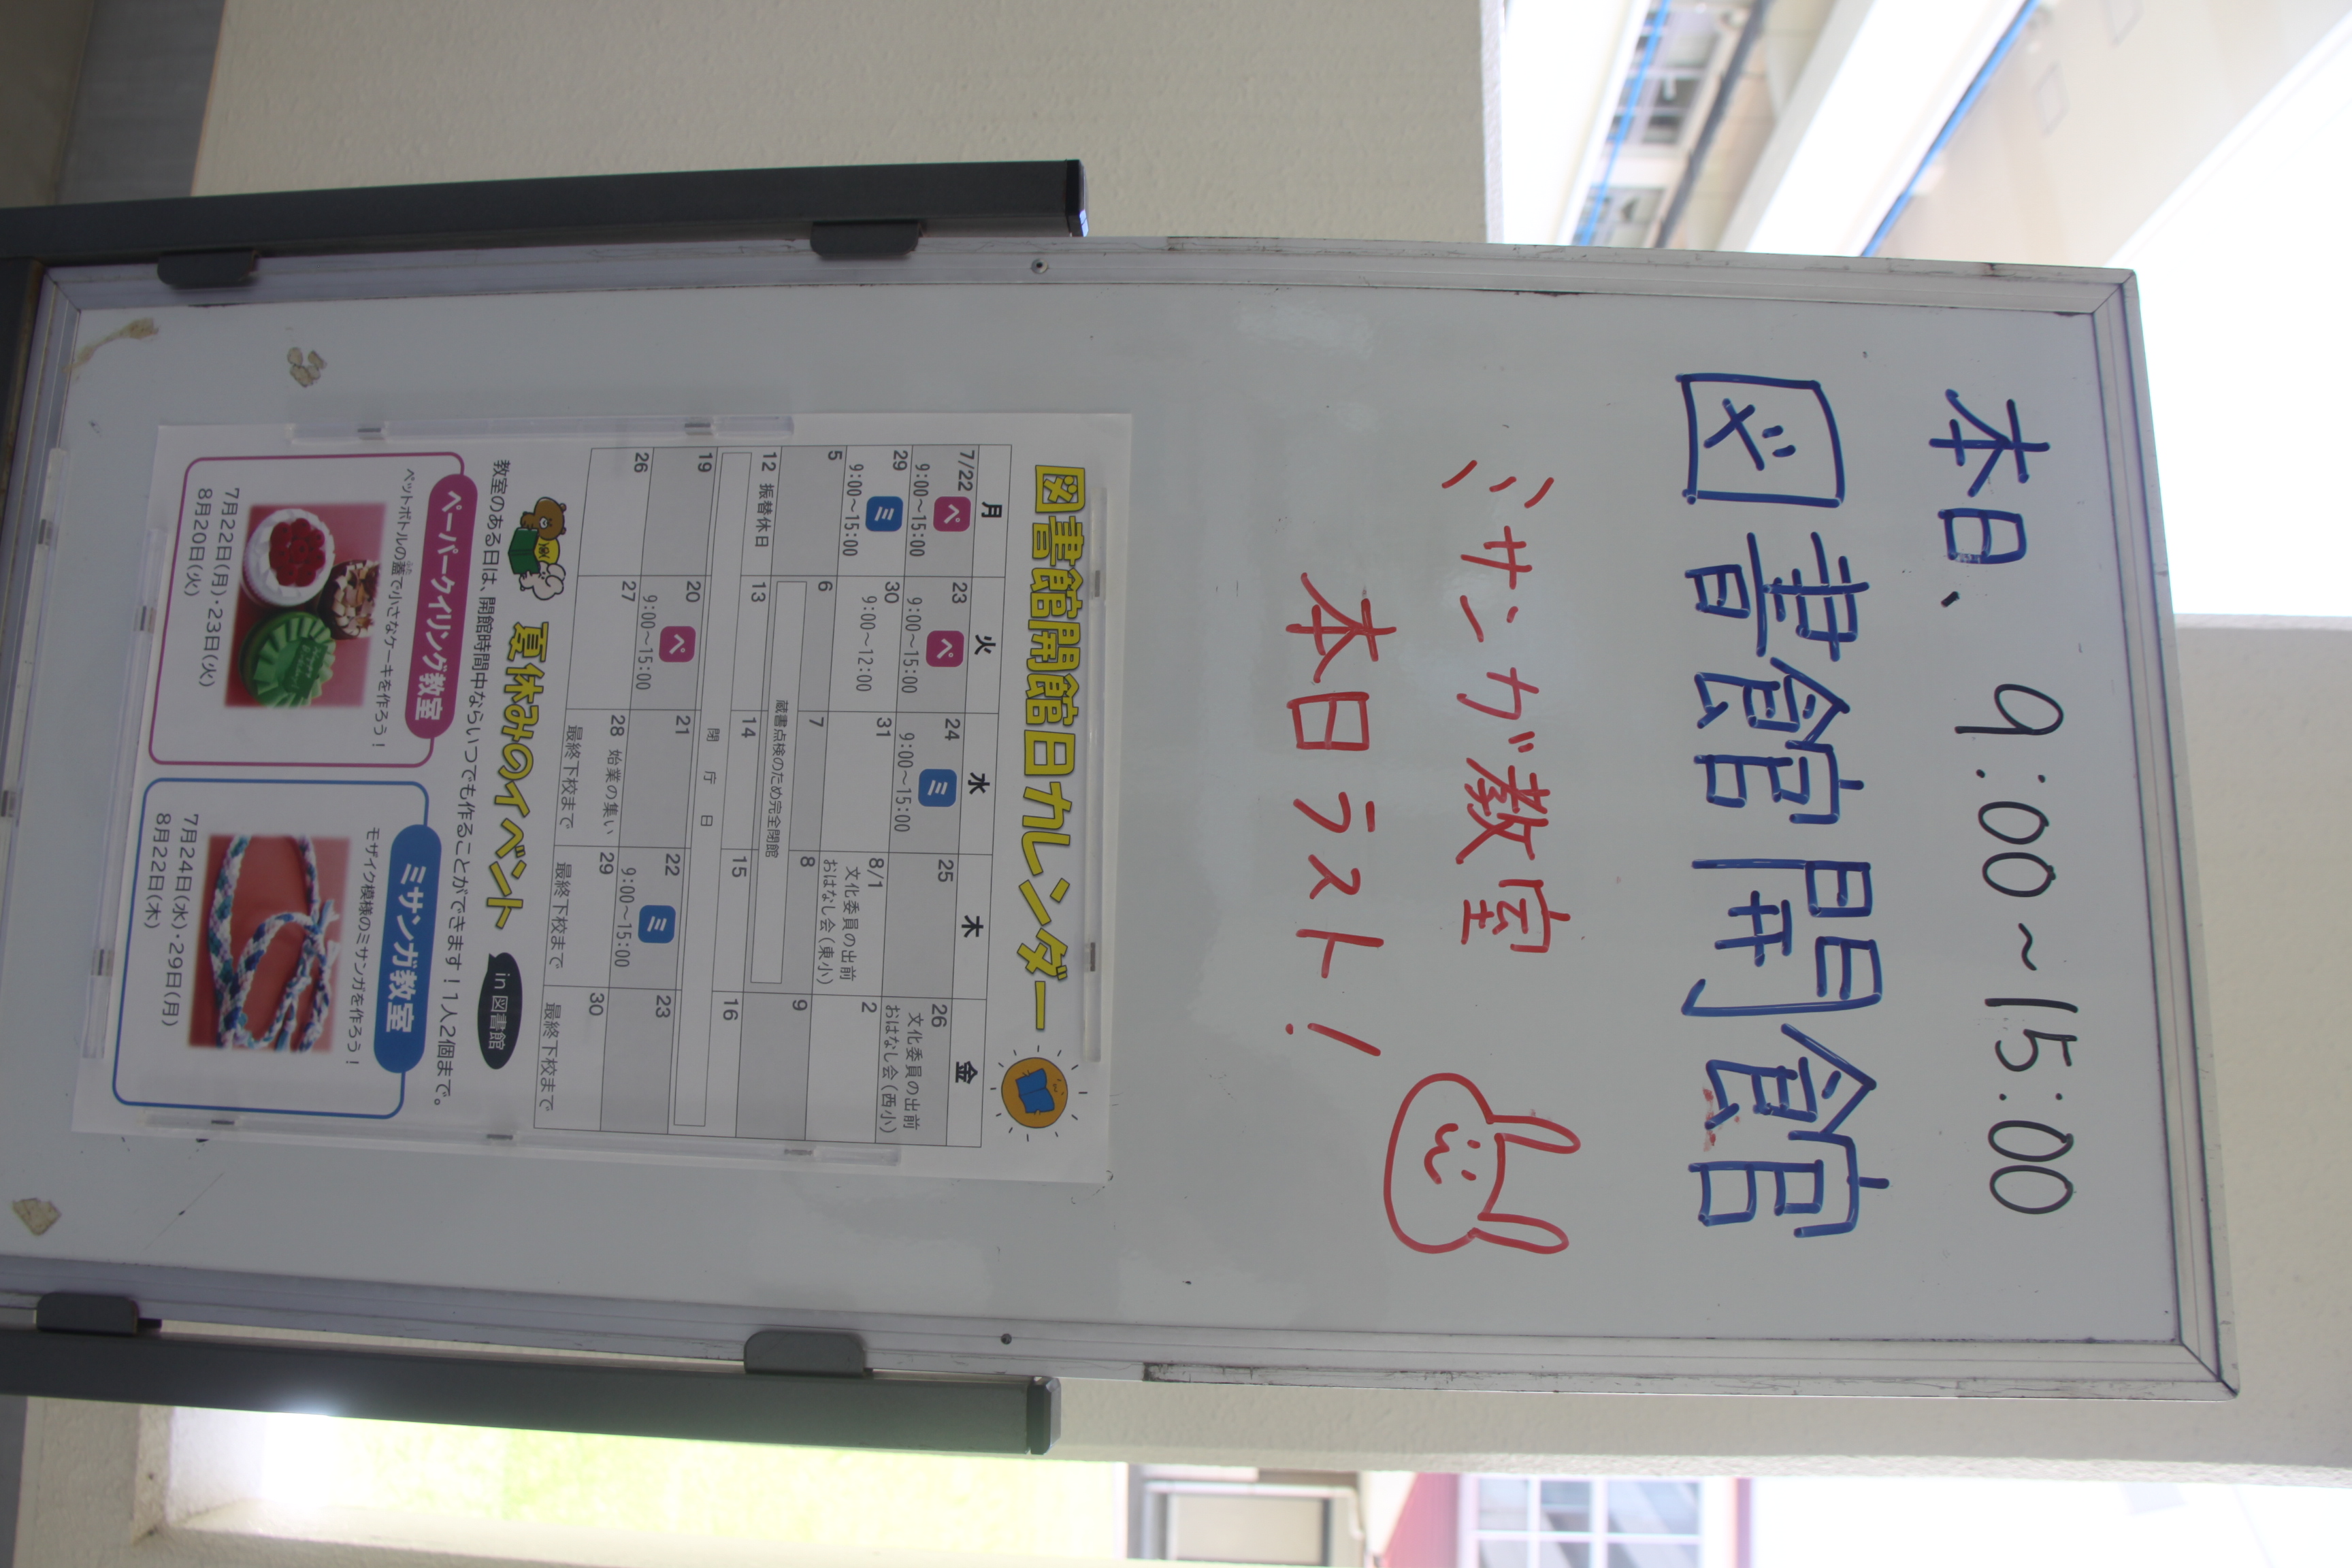 本日、9:00~15:00
図書館開館
ミサンガ教室
本日ラスト!
図書館開館日カレンダー
月 火 水 木 金
7/22 ペ 23 ペ 24 ミ 25 26
9:00~15:00 9:00~15:00 9:00~15:00 文化委員の出前
おはなし会(西小)
29 ミ 30 31 8/1 2
9:00~15:00 9:00~12:00 文化委員の出前
おはなし会(東小)
5 6 7 8 9
蔵書点検のため完全閉館
12 振替休日 13 14 15 16
閉庁日
19 20 ペ 21 22 ミ 23
9:00~15:00 9:00~15:00
26 27 28 始業の集い 29 30
最終下校まで 最終下校まで 最終下校まで
夏休みのイベント in 図書館
教室のある日は、開館時間中ならいつでも作ることができます!1人2個まで。
ペーパークイリング教室
ペットボトルの蓋で小さなケーキを作ろう!
7月22日(月)・23日(火)
8月20日(火)
ミサンガ教室
モザイク模様のミサンガを作ろう!
7月24日(水)・29日(月)
8月22日(木)